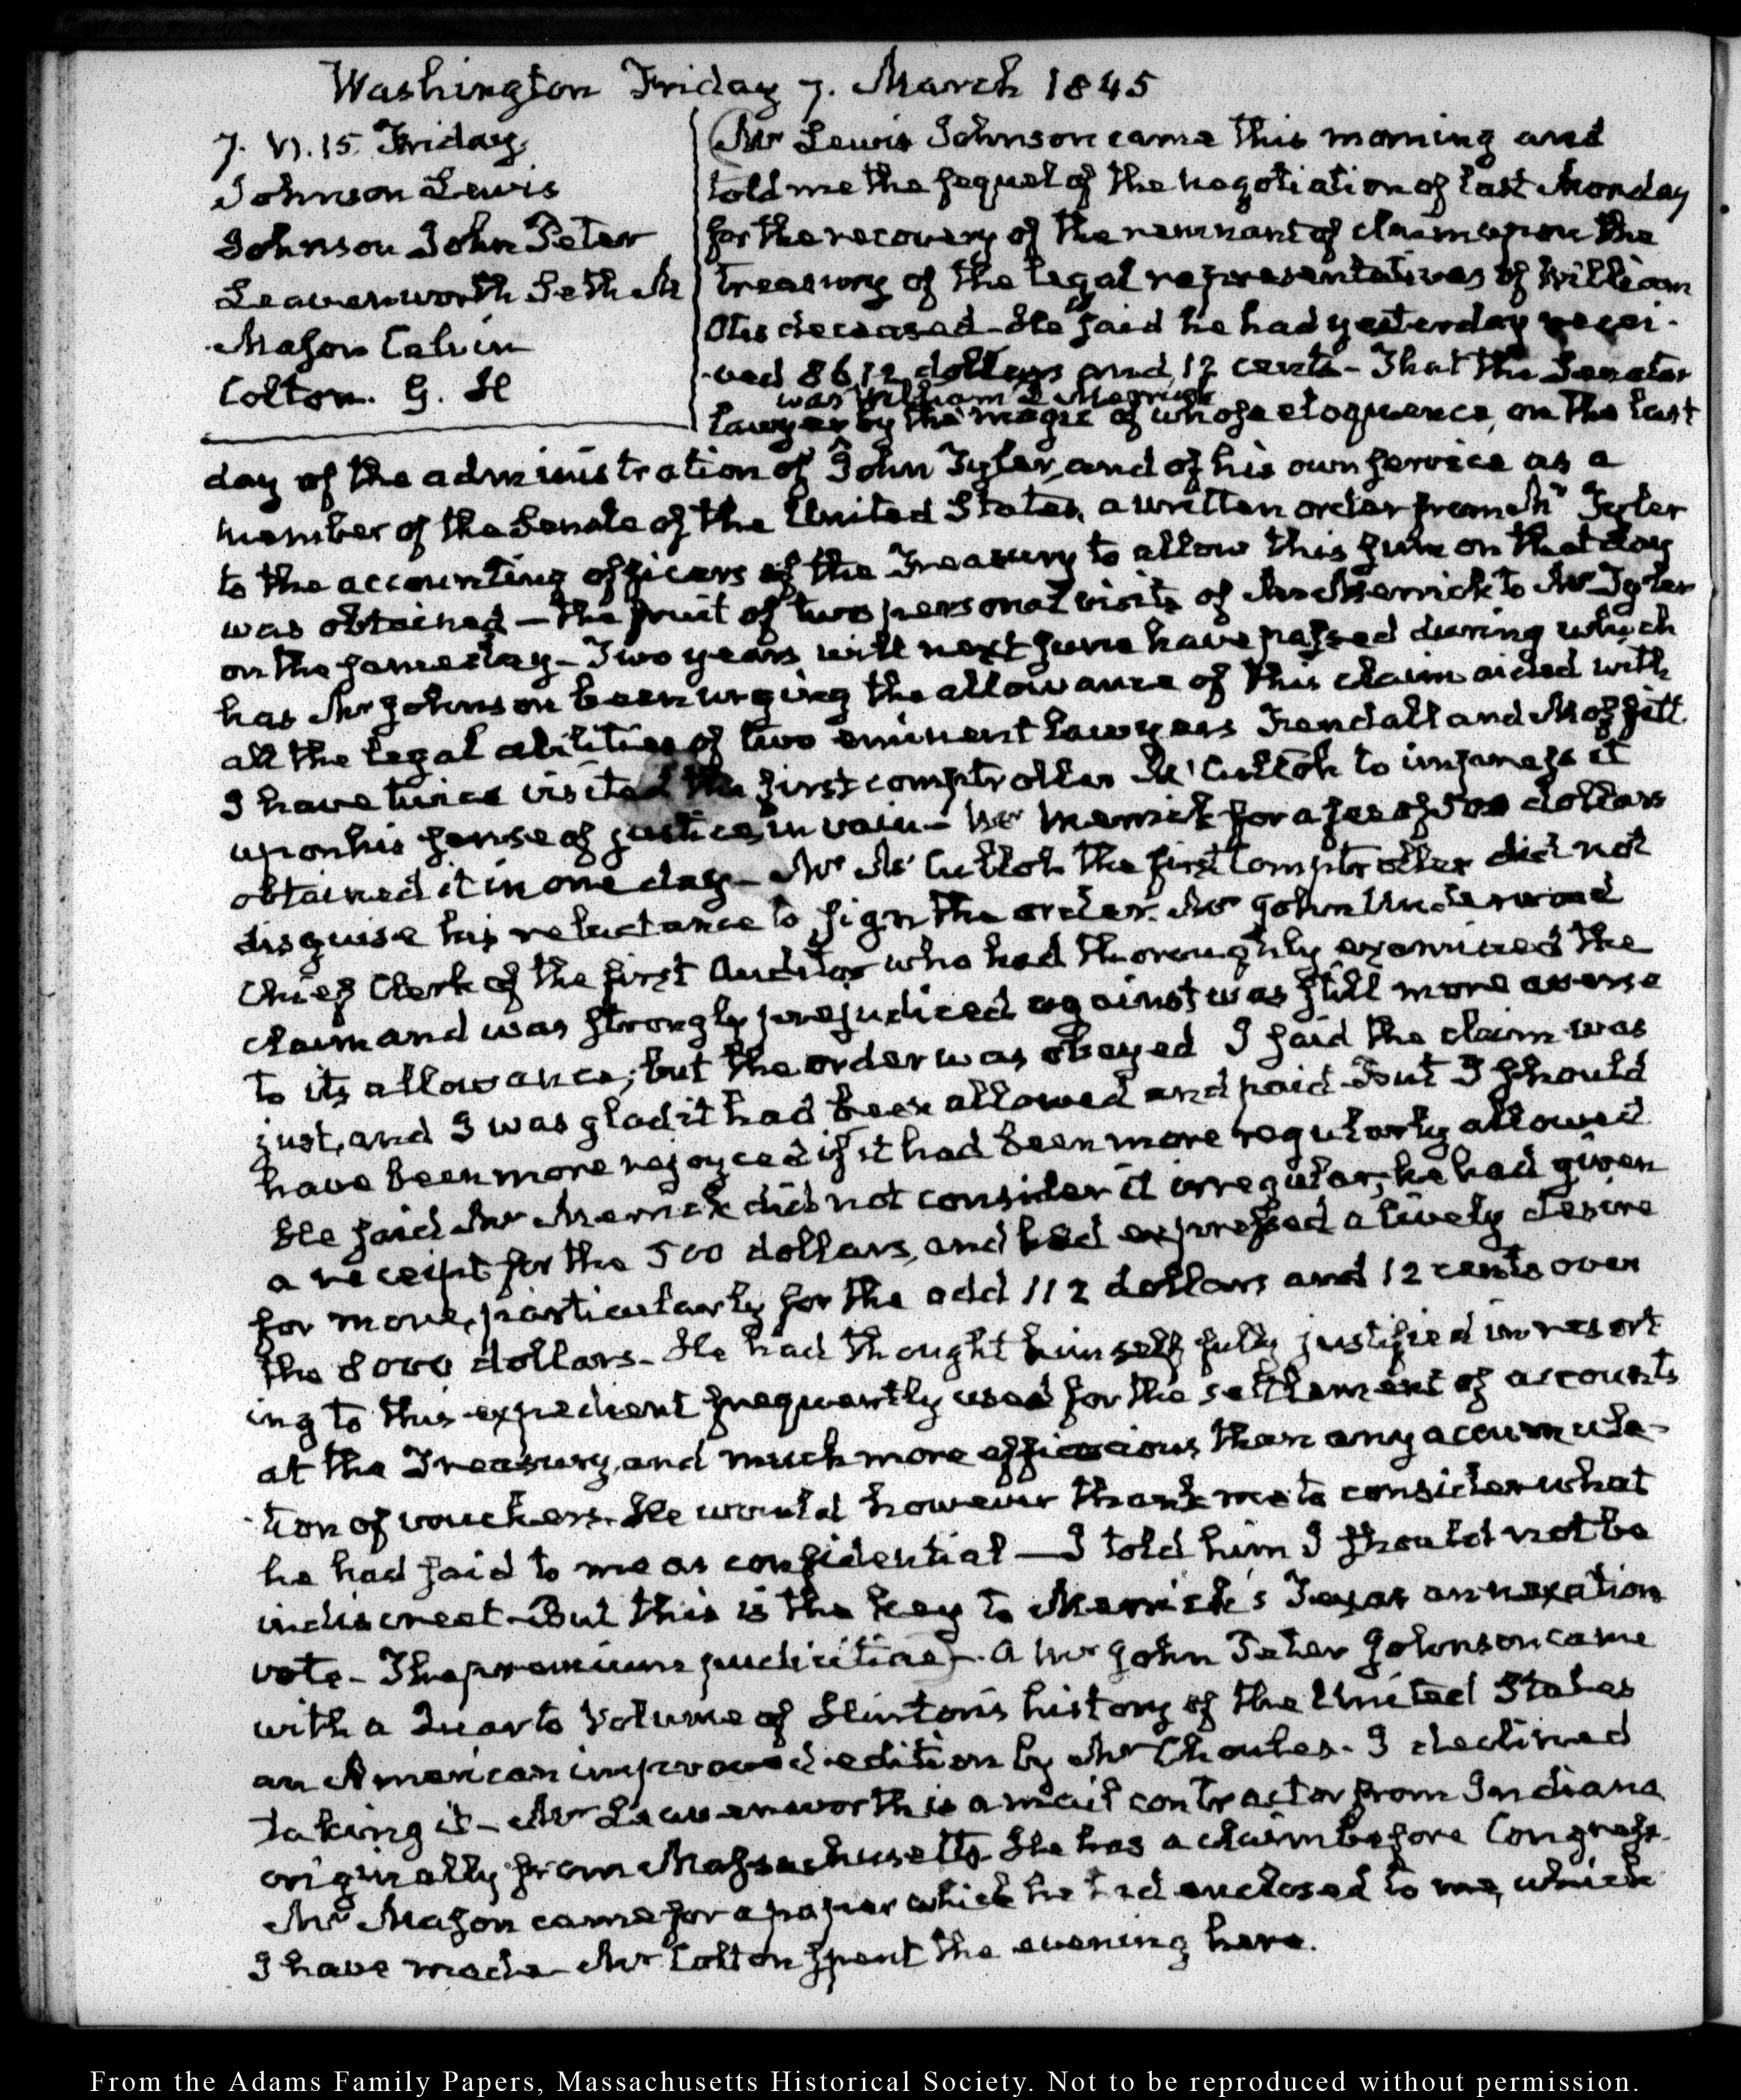 Washington Friday 7. March 1845
7. VI.15. Friday.
Johnson Lewis
Johnson John Peter
Leavenworth Seth M
Mason Calvin
Colton. G. H
Mr Lewis Johnson came this morning and
told me the sequel of the negotiation of last Monday
for the recovery of the remnant of claim upon the
Treasury of the legal representatives of William
Otis deceased. He said he had yesterday recei-
-ved 8612 dollars and 12 cents - That the Senator
was William D Merrick
lawyer by the magic of whose eloquence, on the last
day of the administration of John Tyler, and of his own service as a
member of the Senate of the United States, a written order from Mr Tyler
to the accounting officers of the Treasury to allow this sum on that day
was obtained — the fruit of two personal visits of Mr Merrick to Mr Tyler
on the same day - Two years will next June have passed during which
has Mr Johnson been urging the allowance of this claim aided with
all the legal abilities of two eminent lawyers Fendall and
I have twice visited the first comptroller McCulloh to impress it
upon his sense of justice, in vain - Mr Merrick for a fee of 500 dollars
obtained it in one day - Mr McCulloh the first Comptroller did not
disguise his reluctance to sign the order. Mr John Underwood
Chief Clerk of the first Auditor who had thoroughly examined the
claim and was strongly prejudiced against was still more averse
to its allowance; but the order was obeyed I said the claim was
just, and I was glad it had been allowed and paid - but I should
have been more rejoyced if it had been more regularly allowed
He said Mr Merrick did not consider it irregular; he had given
a receipt for the 500 dollars, and had expressed a lively desire
for more, particularly for the odd 112 dollars and 12 cents over
the 8000 dollars - He had thought himself fully justified in resort
ing to this expedient frequently used for the settlement of accounts
at the Treasury, and much more efficacious than any accumula-
-tion of vouchers. He would however thank me to consider what
he had said to me as confidential — I told him I should not be
indiscreet - But this is the key to Merrick's Texas annexation
vote - The premium pudicitiae - A Mr John Peter Johnson came
with a Quarto Volume of Hinton's history of the United States
an American improved edition by Mr Choules - I declined
taking it - Mr Leavenworth is a mail contractor from Indiana
originally from Massachusetts. He has a claim before Congress.
Mr Mason came for a paper which he had enclosed to me, which
I have made Mr Colton spent the evening here.
From the Adams Family Papers, Massachusetts Historical Society. Not to be reproduced without permission.